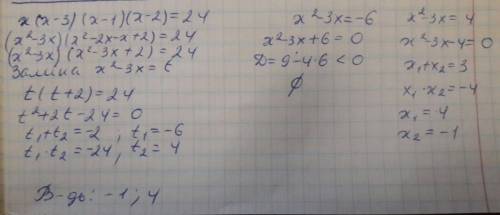 x(x-3)(x-1)(x-2)=24
(x²-3x)(x²-2x-x+2)=24
(x²-3x)(x²-3x+2)=24
Заміна x²-3x=t
t(t+2)=24
t²+2t-24=0
t₁+t₂=-2, t₁=-6
t₁·t₂=-24, t₂=4
x²-3x=-6
x²-3x+6=0
D=9-4·6<0
∅
x²-3x=4
x²-3x-4=0
x₁+x₂=3
x₁·x₂=-4
x₁=4
x₂=-1
В-дь: -1; 4